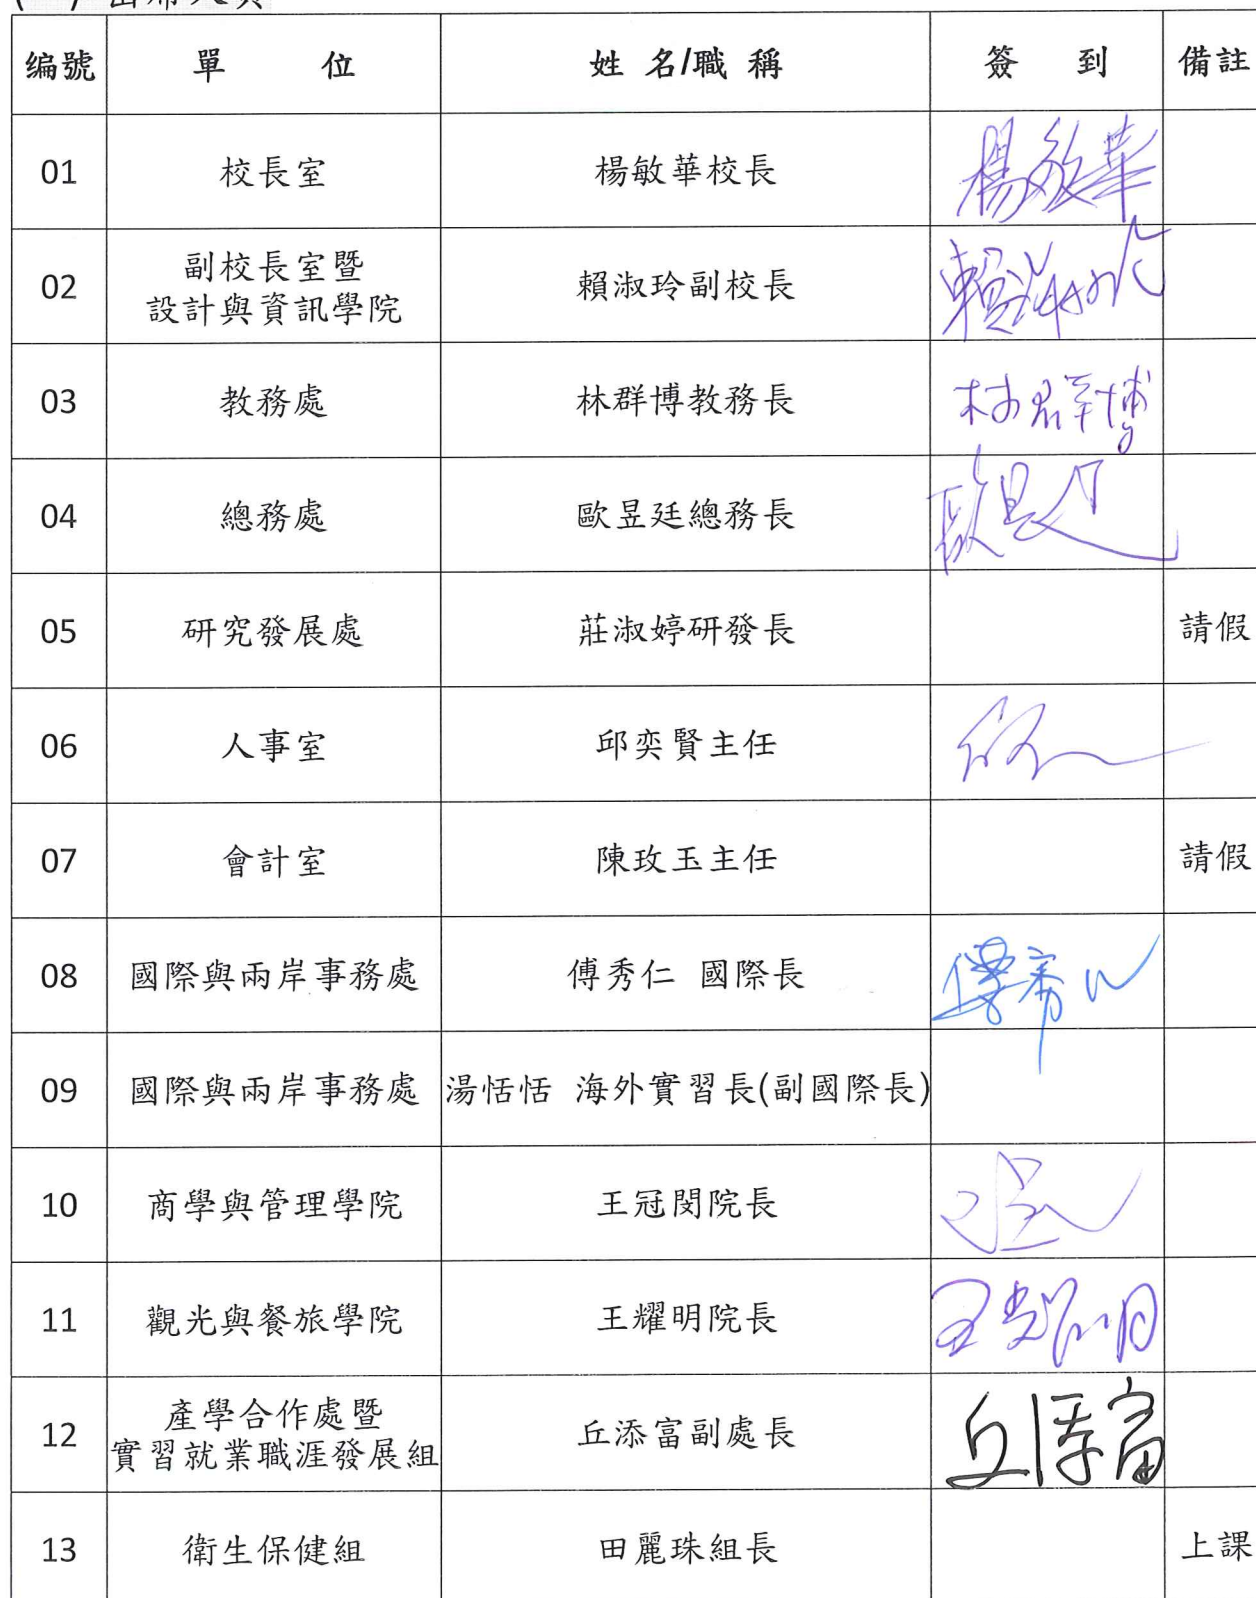 出席人員
编號 單 位 姓 名/職 稱 簽 到 備註
01 校長室 楊敏華校長 楊敏華
02 副校長室暨
設計與資訊學院 賴淑玲副校長 賴淑玲
03 教務處 林群博教務長 林群博
04 總務處 歐昱廷總務長 歐昱廷
05 研究發展處 莊淑婷研發長 請假
06 人事室 邱奕賢主任
07 會計室 陳玫玉主任 請假
08 國際與兩岸事務處 傅秀仁 國際長 傅秀仁
09 國際與兩岸事務處 湯恬恬 海外實習長(副國際長)
10 商學與管理學院 王冠閔院長
11 觀光與餐旅學院 王耀明院長 王耀明
12 產學合作處暨
實習就業職涯發展組 丘添富副處長 丘添富
13 衛生保健組 田麗珠組長 上課